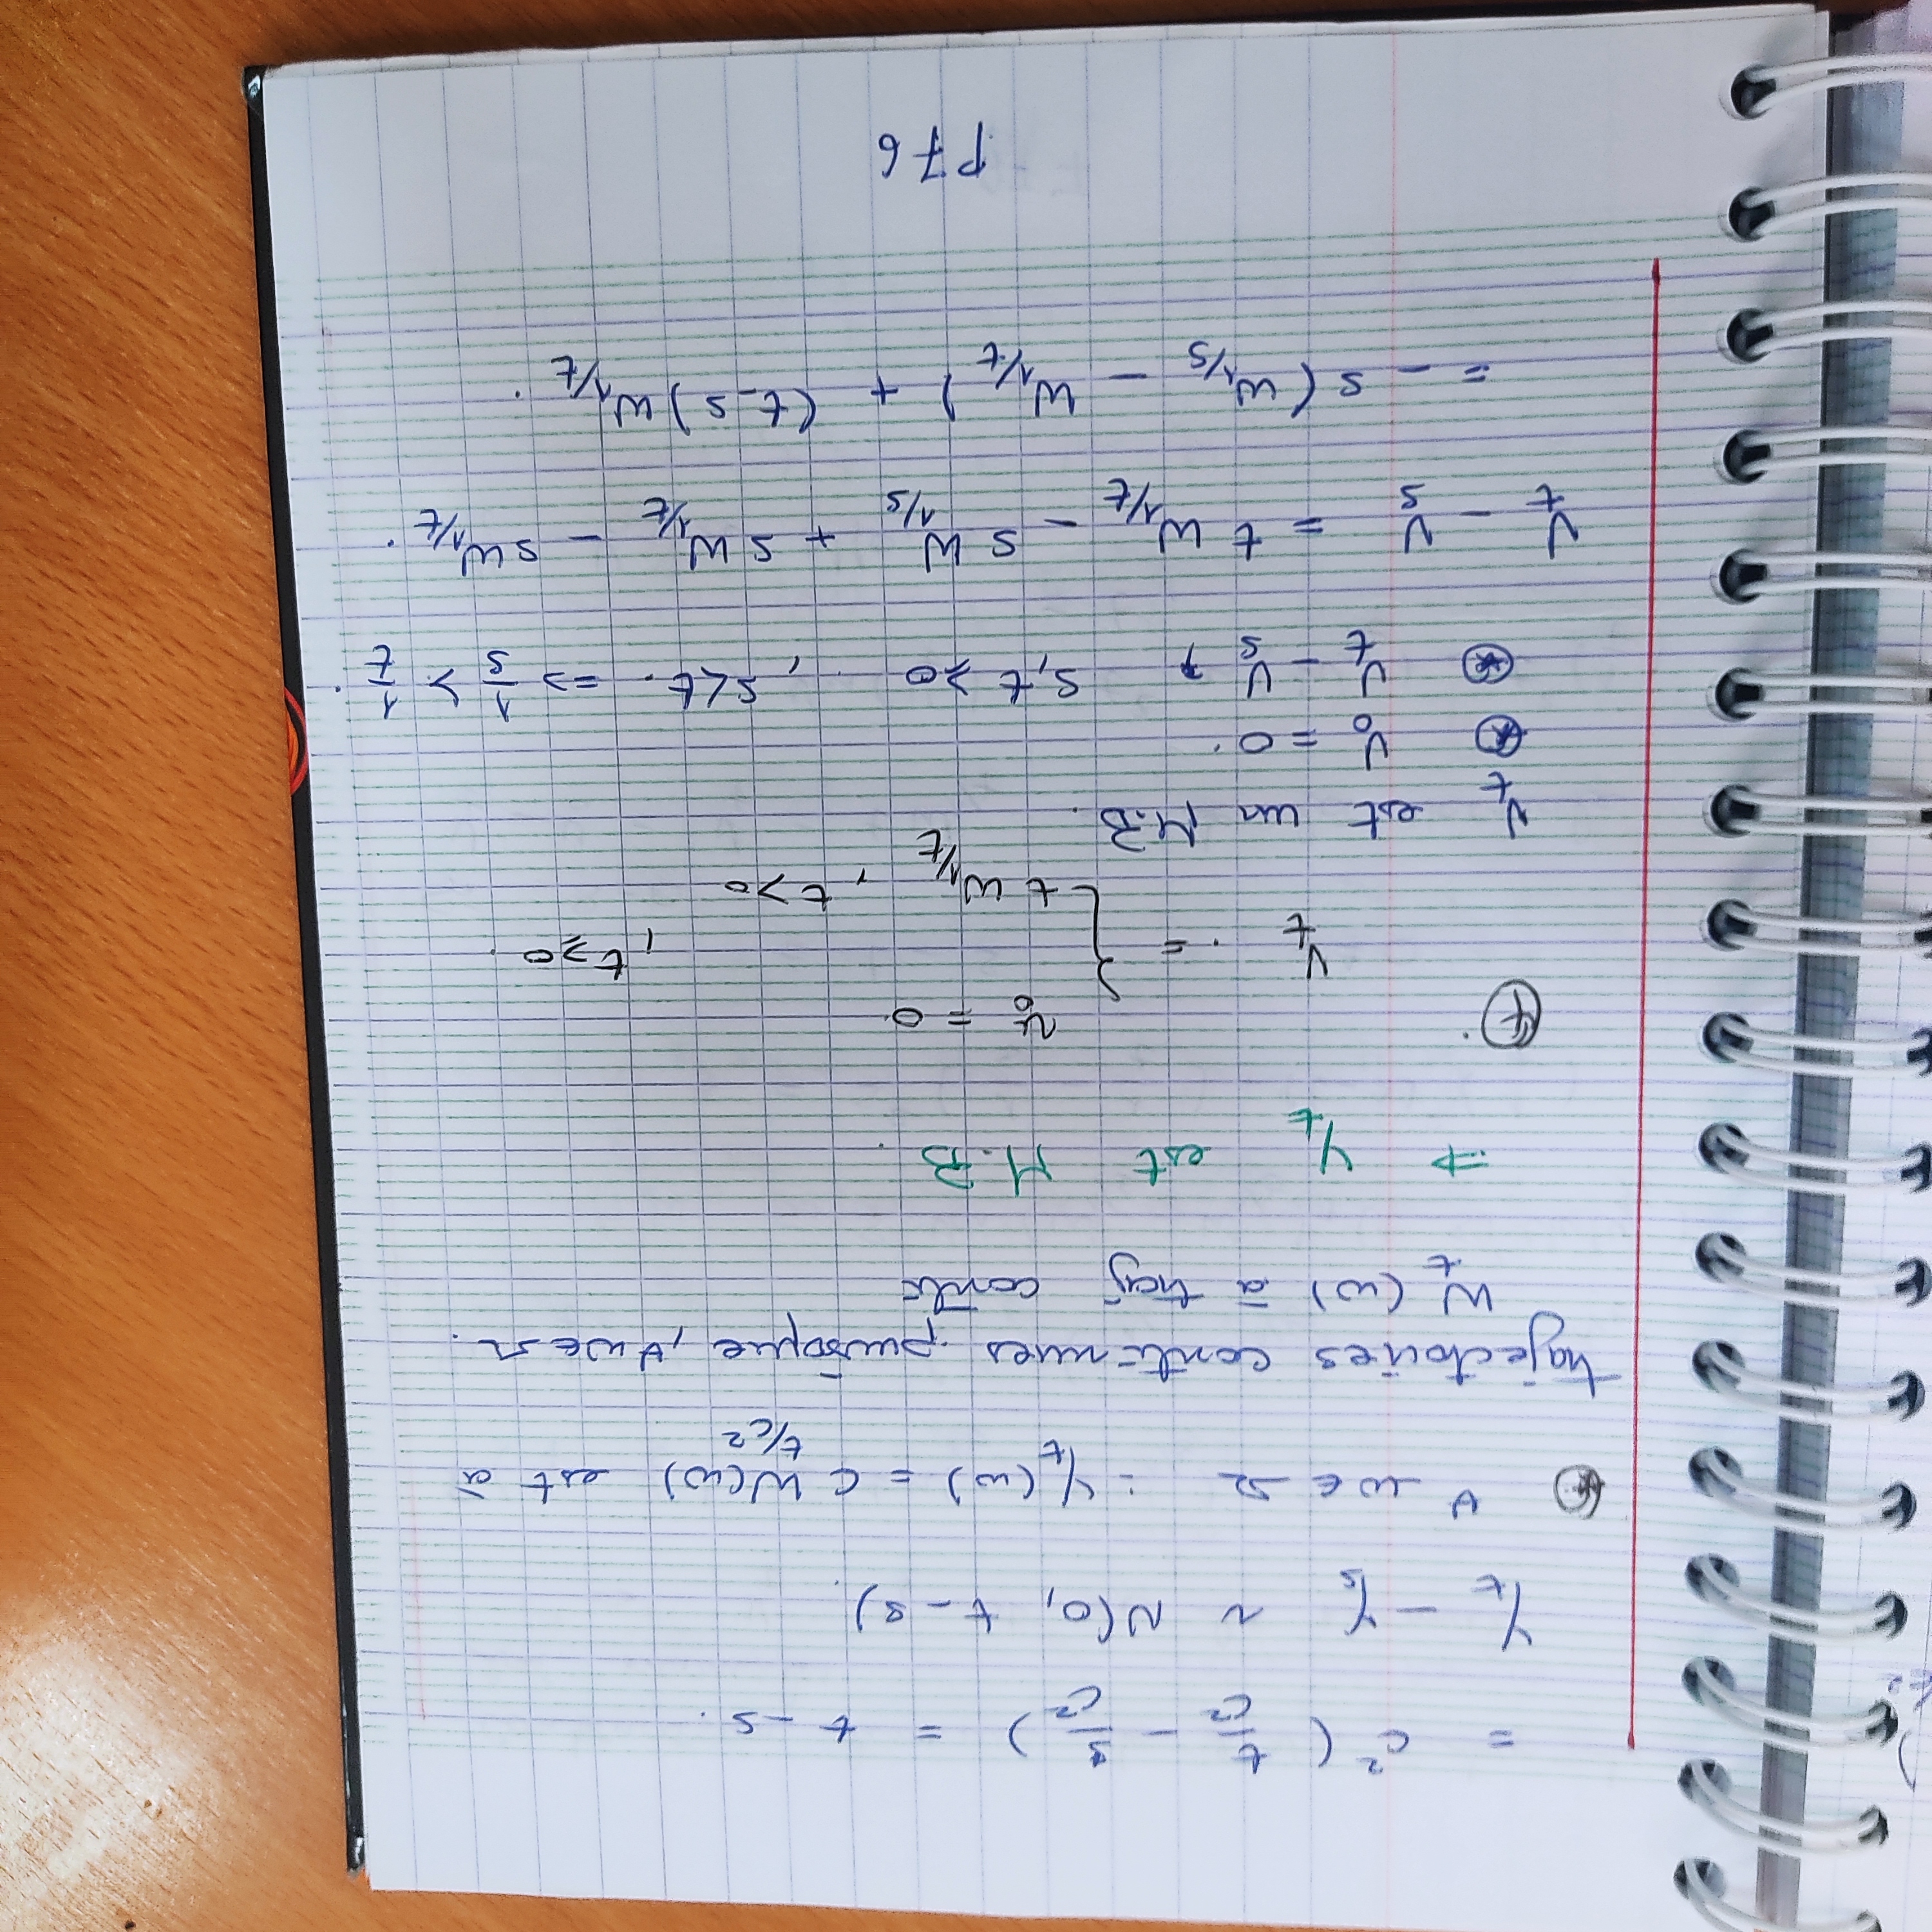 = c² ( t/c² - s/c² ) = t - s.
Y_t - Y_s ~ N(0, t - s).
⊛ ∀ w ∈ Ω : Y_t(w) = c W_{t/c²}(w) est à
trajectoires continues puisque, ∀ w ∈ Ω.
W_t (w) à traj conti
⇒ Y_t est M.B.
④
V_t = { v_0 = 0
t W_{1/t} , t > 0 , t ≥ 0.
V_t est un M.B.
⊛ V_0 = 0.
⊛ V_t - V_s , s, t ≥ 0 , s < t. => 1/s > 1/t.
V_t - V_s = t W_{1/t} - s W_{1/s} + s W_{1/t} - s W_{1/t}.
= - s ( W_{1/s} - W_{1/t} ) + (t - s) W_{1/t}.
P76